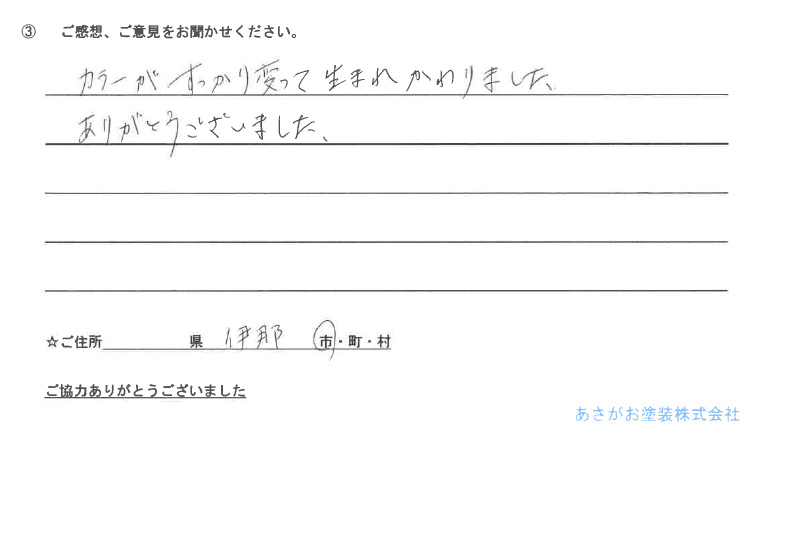 ③ ご感想、ご意見をお聞かせください。
カラーがすっかり変って生まれかわりました。
ありがとうございました。
☆ご住所 県 伊那 市・町・村
ご協力ありがとうございました
あさがお塗装株式会社